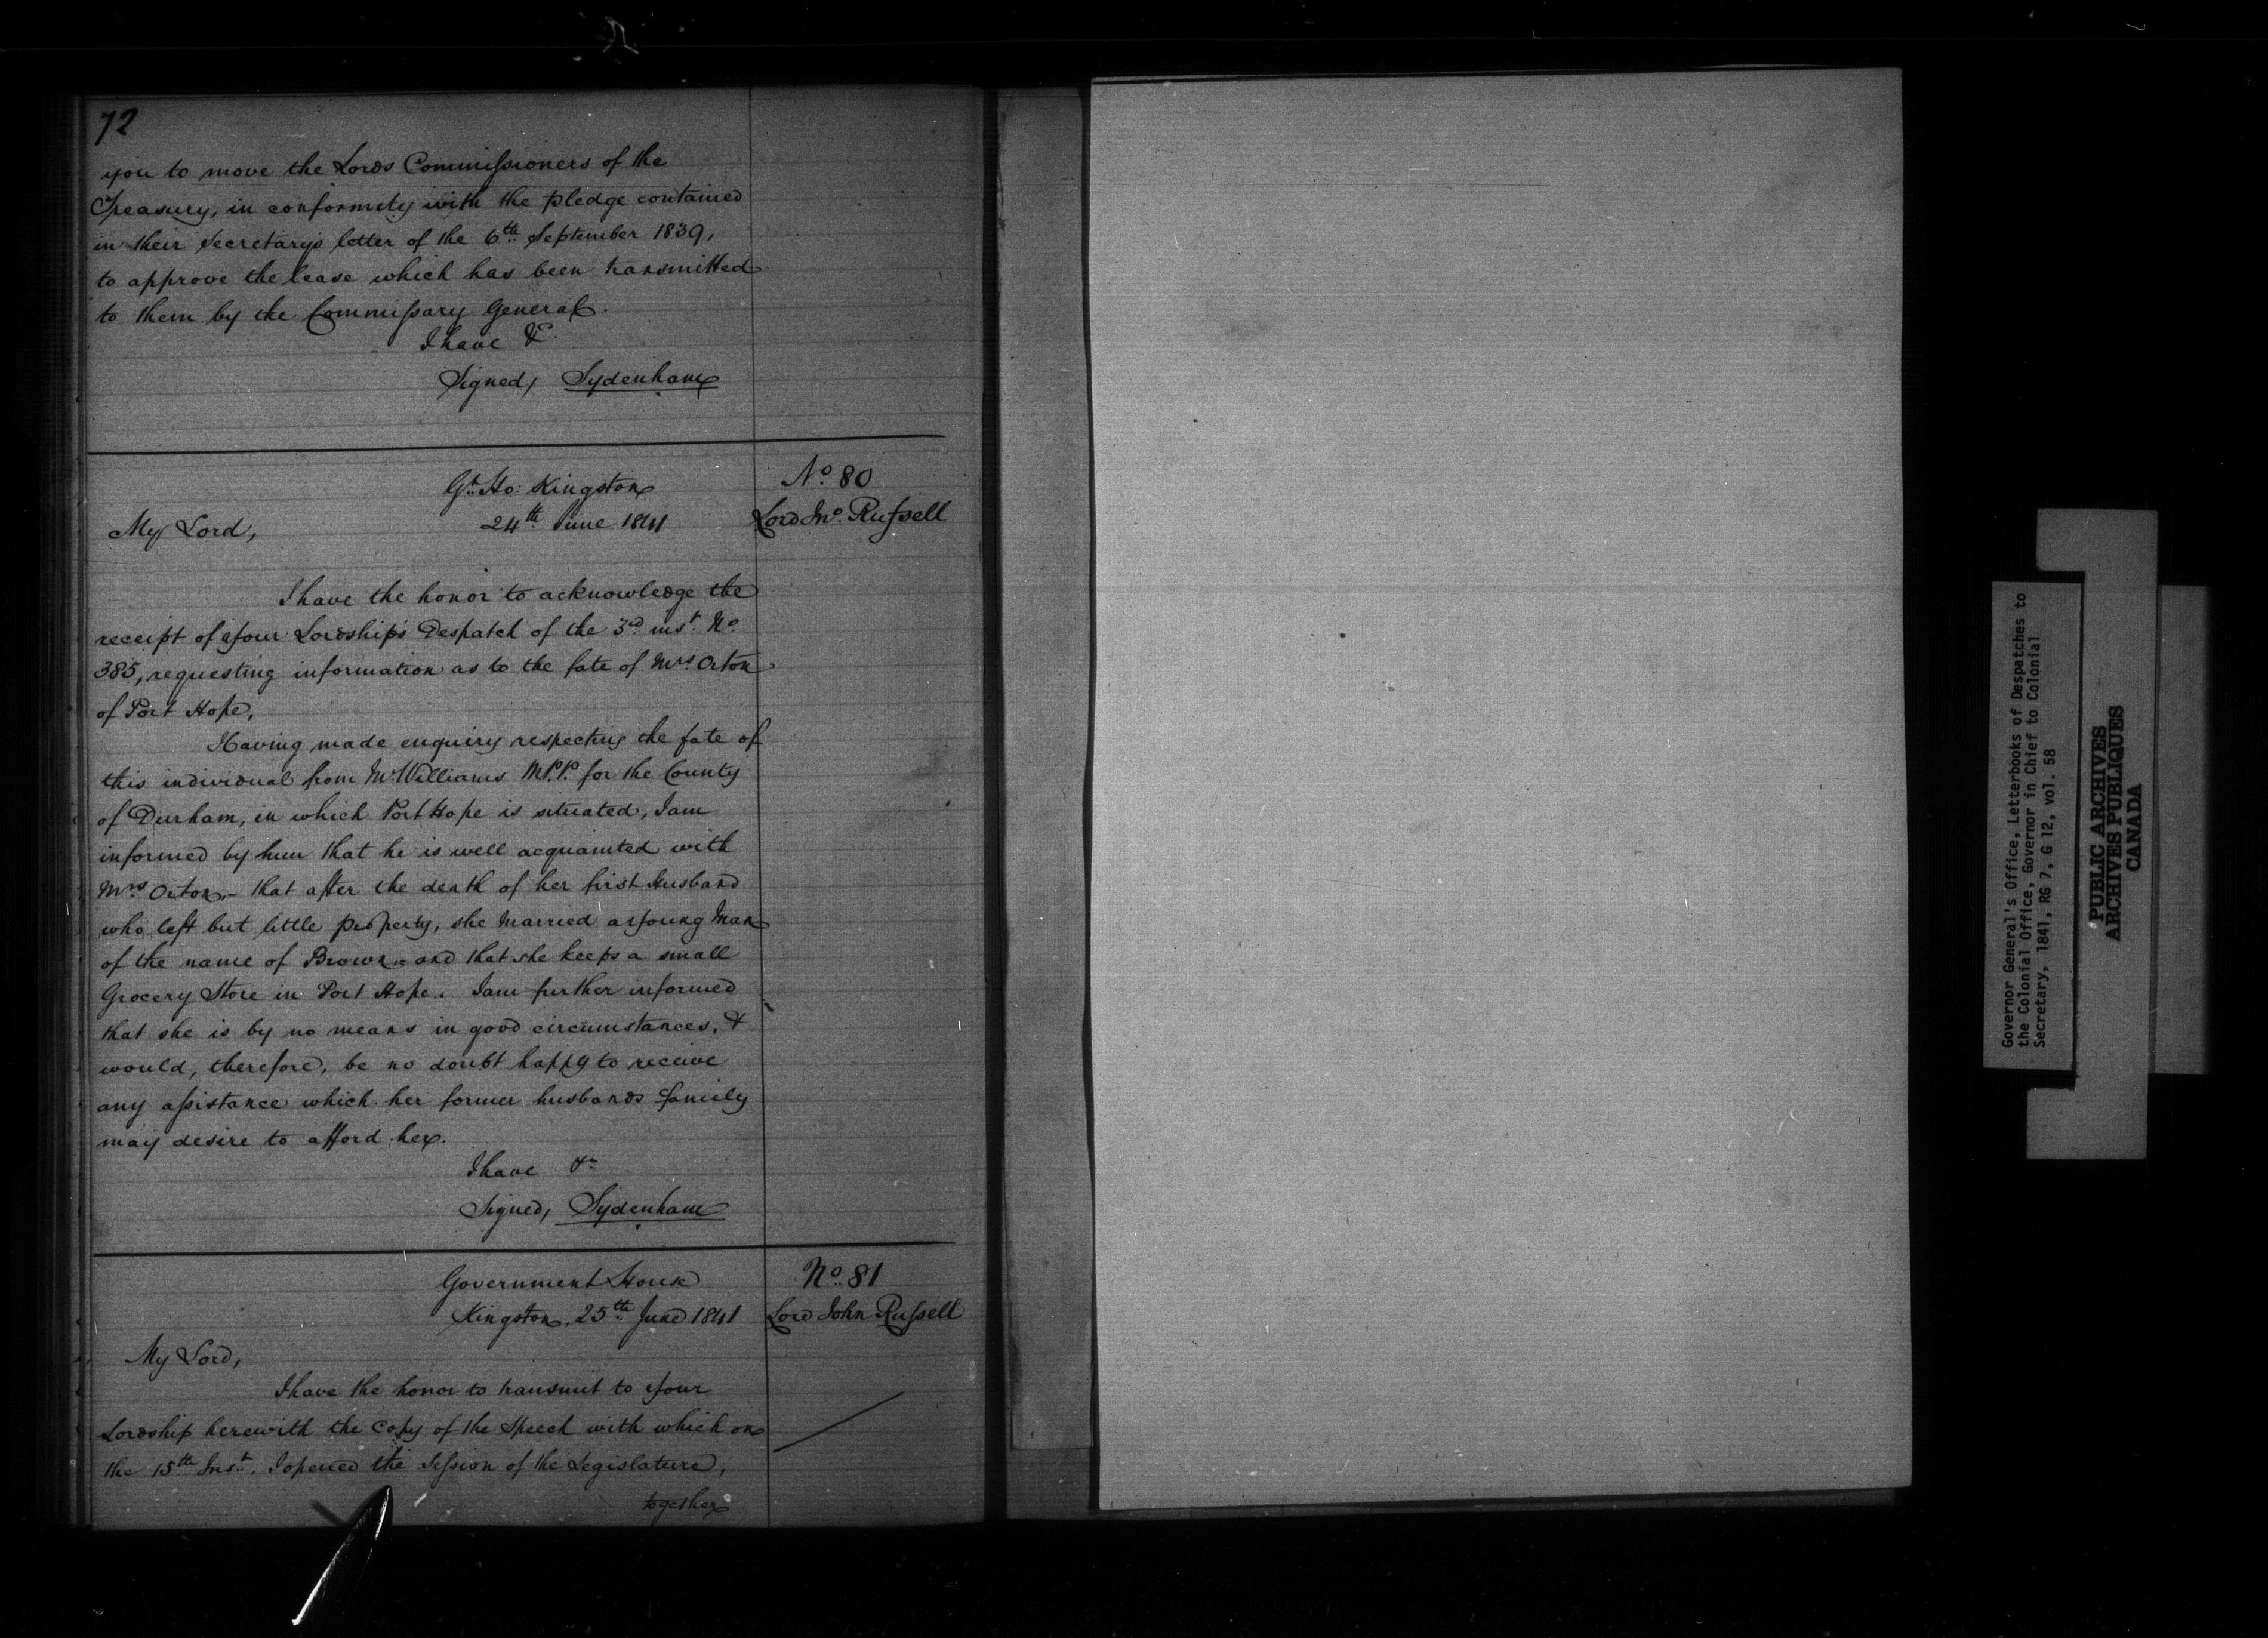 72
you to move the Lords Commissioners of the
Treasury, in conformity with the pledge contained
in their Secretary's letter of the 6th September 1839,
to approve the lease which has been transmitted
to them by the Commissary General.
I have &c.
Signed, Sydenham
Gt. Ho: Kingston
24th June 1841
No. 80
Lord Jno. Russell
My Lord,
I have the honor to acknowledge the
receipt of Your Lordship's Despatch of the 3rd inst. No.
385, requesting information as to the fate of Mrs. Orton
of Port Hope,
Having made enquiry respecting the fate of
this individual from Mr. Williams M.P.P. for the County
of Durham, in which Port Hope is situated, I am
informed by him that he is well acquainted with
Mrs. Orton, - that after the death of her first Husband
who left but little property, she married a young Man
of the name of Brown - and that she keeps a small
Grocery Store in Port Hope. I am further informed
that she is by no means in good circumstances, &
would, therefore, be no doubt happy to receive
any assistance which her former husbands family
may desire to afford her.
I have &c
Signed, Sydenham
Government House
Kingston, 25th June 1841
No. 81
Lord John Russell
My Lord,
I have the honor to transmit to Your
Lordship herewith the copy of the Speech with which on
the 15th Inst. I opened the Session of the Legislature,
together
Governor General's Office, Letterbooks of Despatches to
the Colonial Office, Governor in Chief to Colonial
Secretary, 1841, RG 7, G 12, vol. 58
PUBLIC ARCHIVES
ARCHIVES PUBLIQUES
CANADA